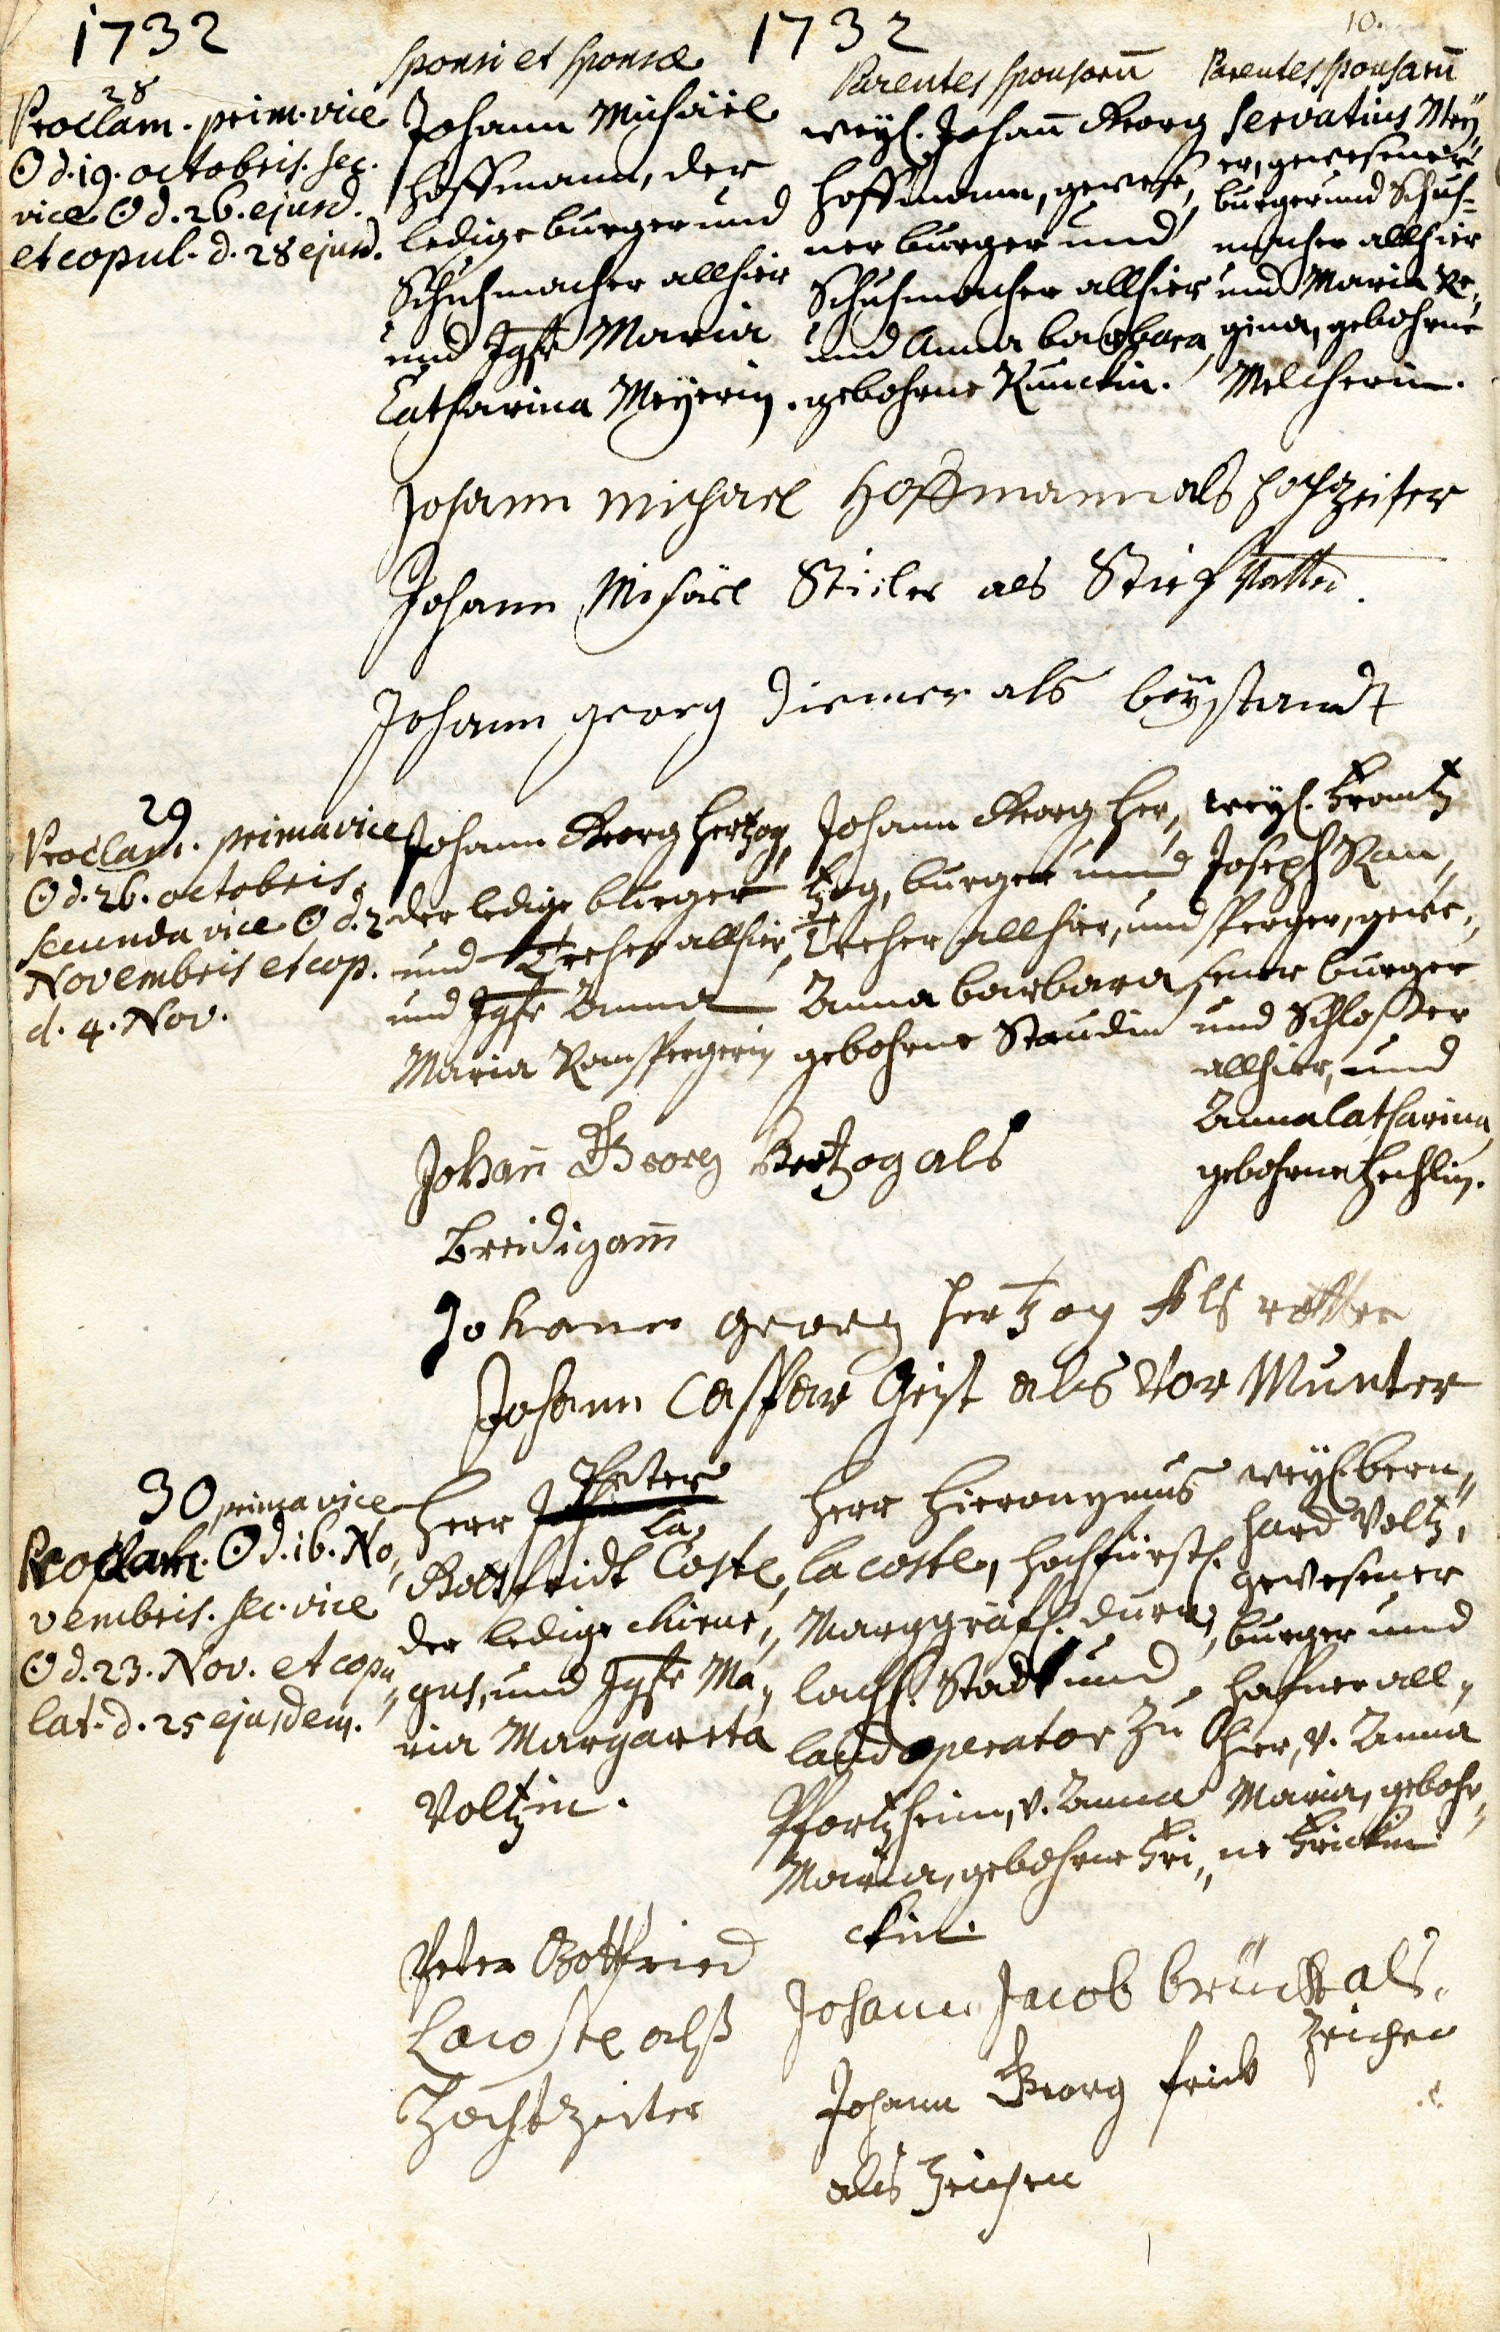 1732
1732
10.
Sponsi et Sponsæ
Parentes sponsorū
Parentes sponsarū
28
Proclam. prim. vice
☉ d. 19. octobris. sec.
vice ☉ d. 26. ejusd.
et copul. d. 28 ejusd.
Johann Michäel
Hoffmann, der
ledige burger und
Schuhmacher allhier
und Jgfr Maria
Catharina Meÿerin.
weÿl. Johañ Georg
Hoffmann, gewese„
ner burger und
Schuhmacher allhier
und Anna barbara
gebohrne Kunckin.
Servatius Meÿ„
er, gewesener
burger und Schuh=
macher allhier
und Maria Re„
gina, gebohrne
Melcherin.
Johann Michael Hoffmann als hochzeiter
Johann Michäel Stieler als Stieffvatter.
Johann georg Diemer als beÿstandt
29
Proclam. prima vice
☉ d. 26. octobris,
secunda vice ☉ d. 2
Novembris et cop.
d. 4. Nov.
Johann Georg Hertzog,
der ledige burger
und Treher allhier,
und Jgfr Anna
Maria Ranspergerin
Johann Georg Her„
tzog, burger und
Treher allhier, und
Anna barbara
gebohrne Staudin
weÿl. Frantz
Joseph Ran„
sperger, gewe„
sener burger
und Schloßer
allhier, und
Anna Catharina,
gebohrne Hechlin.
Johañ Georg Hertzog als
Breidigam̄
Johann georg hertzog Als vatter
Johann Casspar Geist als Vor Munter
30 prima vice
Proclam. ☉ d. 16. No„
vembris. sec. vice
☉ d. 23. Nov. et copu„
lat. d. 25 ejusdem.
Herr Peter
La
Gottfridt Coste,
der ledige chirur„
gus, und Jgfr Ma„
ria Margareta
Voltzin.
Herr Hieronymus
la coste, hochfürstl.
Marggräfl. dur„
lachl. Stadt und
land operator zu
Pfortzheim, v. Anna
Maria, gebohrne Fri„
ckin.
weÿl. bern„
hard Voltz,
gewesener
burger und
hafner all„
hier, v. Anna
Maria, gebohr„
ne Frickin
Peter Gottfried
Lacoste alß
Hochtzeiter
Johann Jacob brückt als
Zeichen
Johann Georg frick
als Zeichen